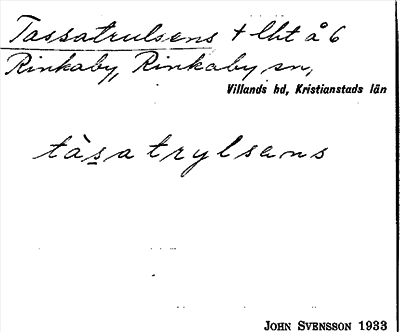 Tassatrulsens + lht å 6
Rinkaby, Rinkaby sn,
Villands hd, Kristianstads län
tàs̲atrylsens
JOHN SVENSSON 1933